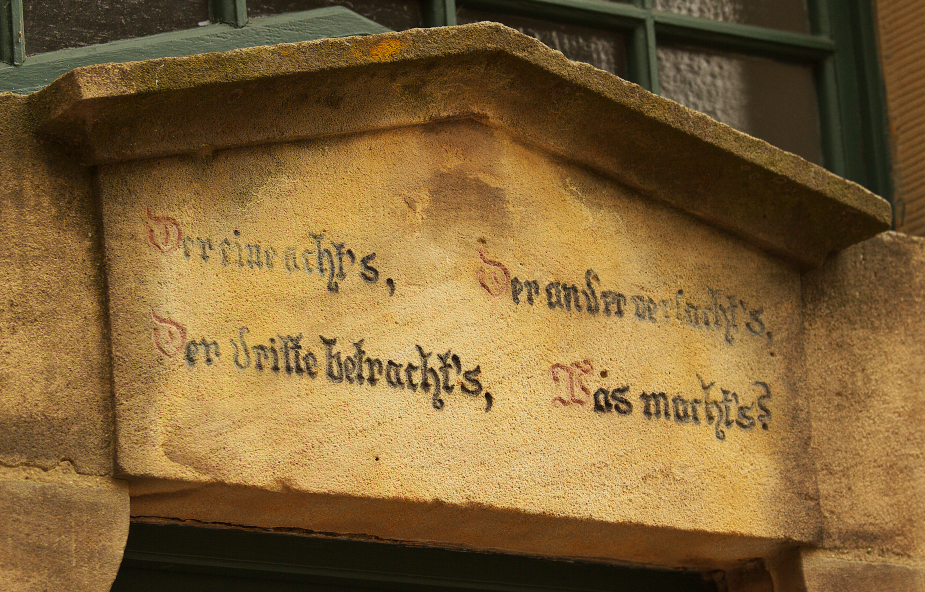 Der eine acht's, Der ander verlacht's,
Der dritte betracht's, Was macht's?